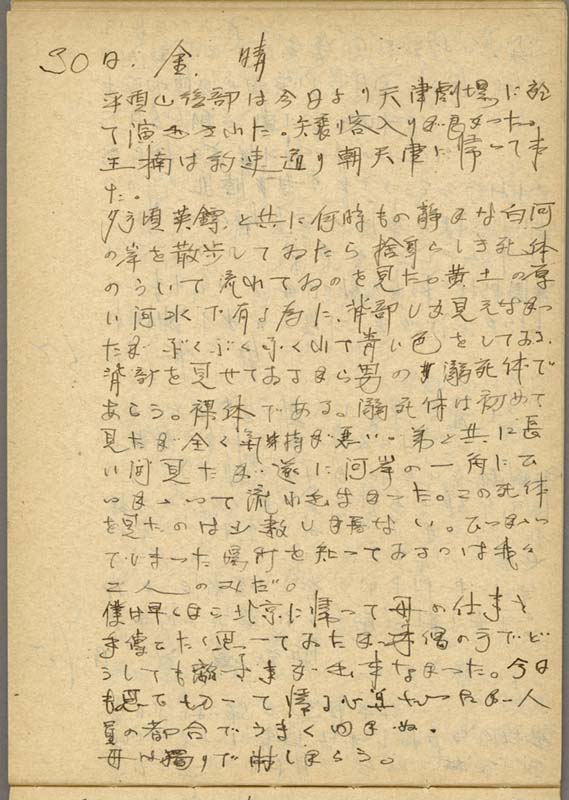 30日. 金. 晴
平頂山後部は今日より天津劇場に於
て演出された。矢張り客入りが良かった。
王楠は約速通り朝天津に帰って来
た。
夕方頃英鏢と共に何時もの静かな白河
の岸を散歩してゐたら捨身らしき死体
のういて流れてゐのを見た。黄土の厚
い河水で有る為に、背部しか見えなかっ
たがぶくぶくふくれて青い色をしてゐる、
背部を見せておるから男の溺死体で
あらう。裸体である。溺死体は初めて
見たが全く気味持が悪い。弟と共に長
い間見たが遂に河岸の一角にひ
いかゝって流れ出なかった。この死体
を見たのは少数しか居ない。ひっかゝっ
てしまった場所を知っておるのは我々
二人のみだ。
僕は早くから北京に帰って母の仕事を
手傳てたく思ってゐたが の方でど
うしても離す事が出来なかった。今日
も思て切って帰る 人
員の都合でうまく ぬ.
母は獨りで淋しからう。